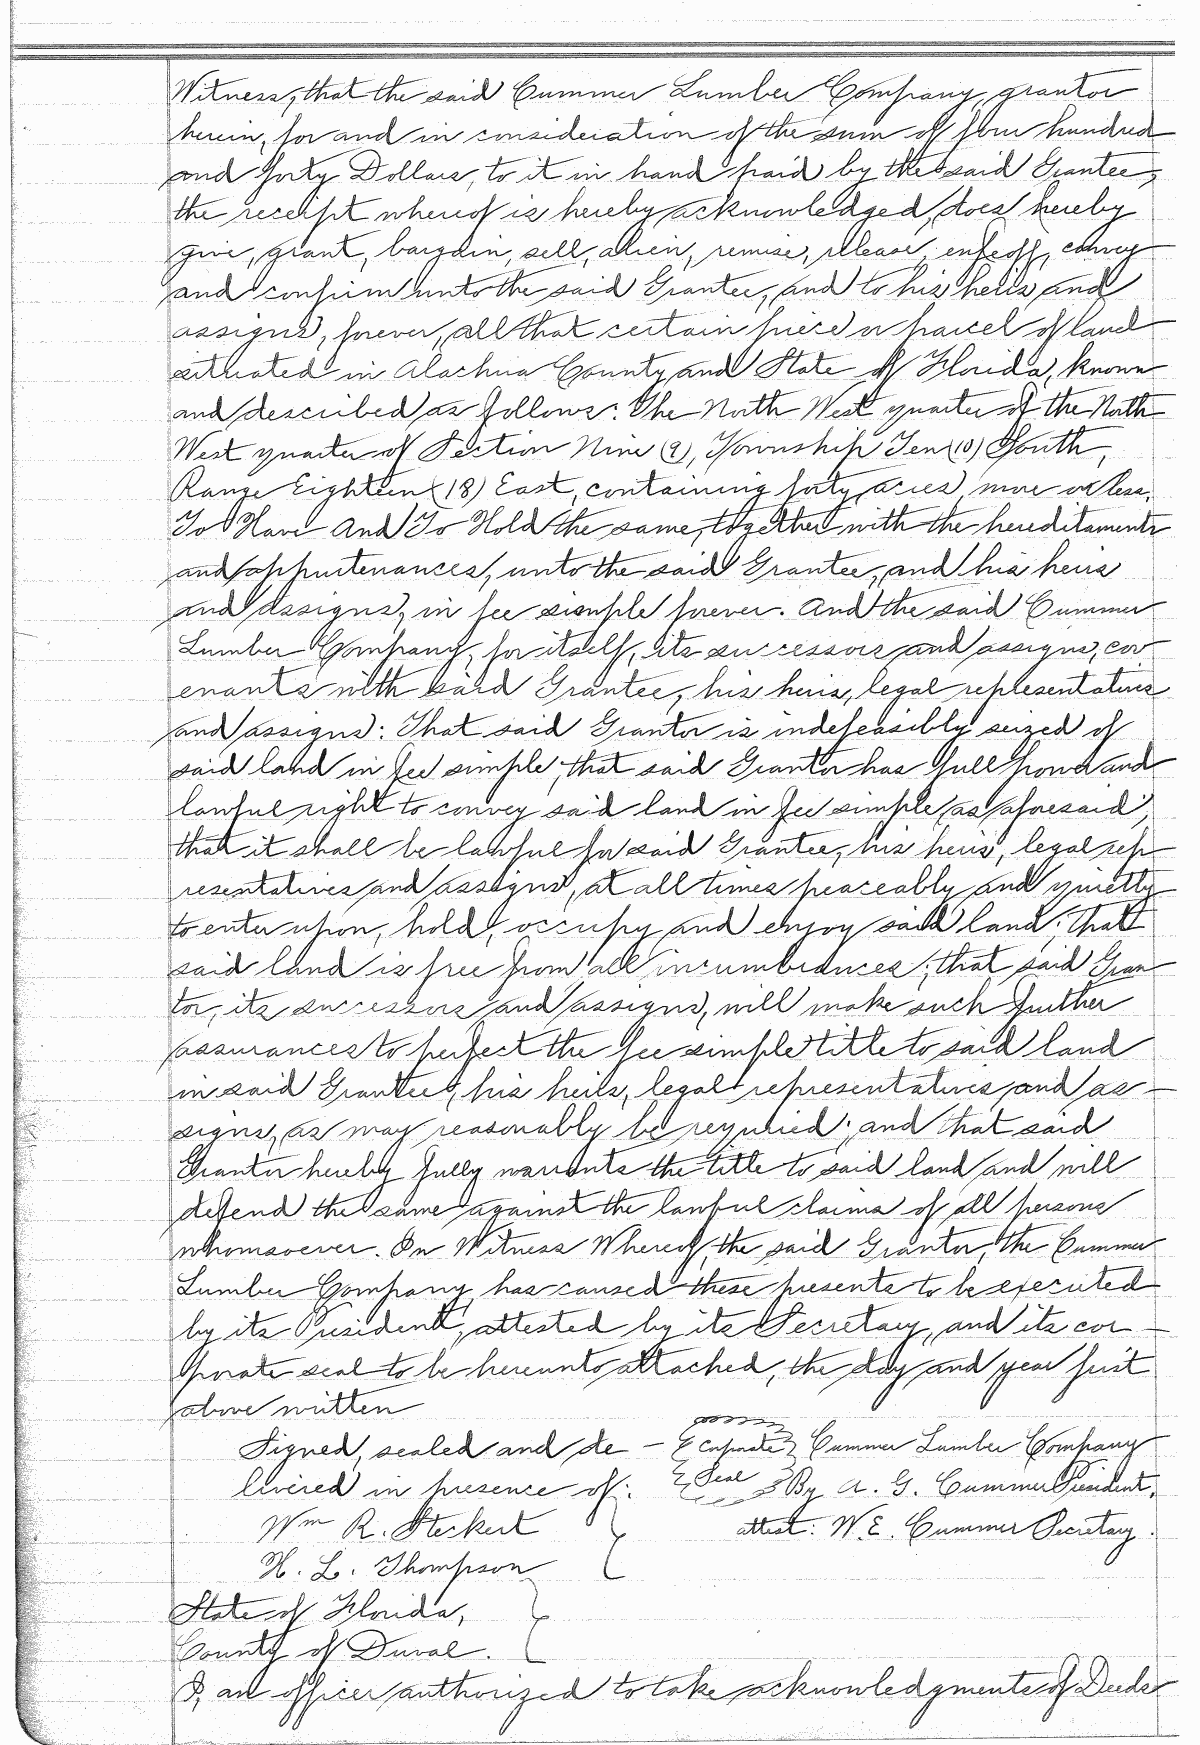 Witness, that the said Cummer Lumber Company, grantor
herein, for and in consideration of the sum of four hundred
and forty Dollars, to it in hand paid by the said Grantee,
the receipt whereof is hereby acknowledged, does hereby
give, grant, bargain, sell, alien, remise, release, enfeoff, convey
and confirm unto the said Grantee, and to his heirs and
assigns, forever, all that certain piece or parcel of land
situated in Alachua County and State of Florida, known
and described as follows: The North West quarter of the North
West quarter of Section Nine (9), Township Ten (10) South,
Range Eighteen (18) East, containing forty acres, more or less.
To Have And To Hold the same, together with the hereditaments
and appurtenances, unto the said Grantee, and his heirs
and assigns, in fee simple forever. And the said Cummer
Lumber Company, for itself, its successors and assigns, cov
enants with said Grantee, his heirs, legal representatives
and assigns: That said Grantor is indefeasibly seized of
said land in fee simple; that said Grantor has full power and
lawful right to convey said land in fee simple, as aforesaid;
that it shall be lawful for said Grantee, his heirs, legal rep
resentatives and assigns, at all times peaceably and quietly
to enter upon, hold, occupy and enjoy said land; that
said land is free from all incumbrances; that said Gran
tor, its successors and assigns, will make such further
assurances to perfect the fee simple title to said land
in said Grantee, his heirs, legal representatives and as-
signs, as may reasonably be required; and that said
Grantor hereby fully warrants the title to said land and will
defend the same against the lawful claims of all persons
whomsoever. In Witness Whereof, the said Grantor, the Cummer
Lumber Company, has caused these presents to be executed
by its President, attested by its Secretary, and its cor-
porate seal to be hereunto attached, the day and year first
above written
Signed, sealed and de- Corporate Cummer Lumber Company
livered in presence of: Seal By A. G. Cummer President,
Wm R. Steckert attest: W. E. Cummer Secretary.
H. L. Thompson
State of Florida,
County of Duval.
I, an officer authorized to take acknowledgments of Deeds